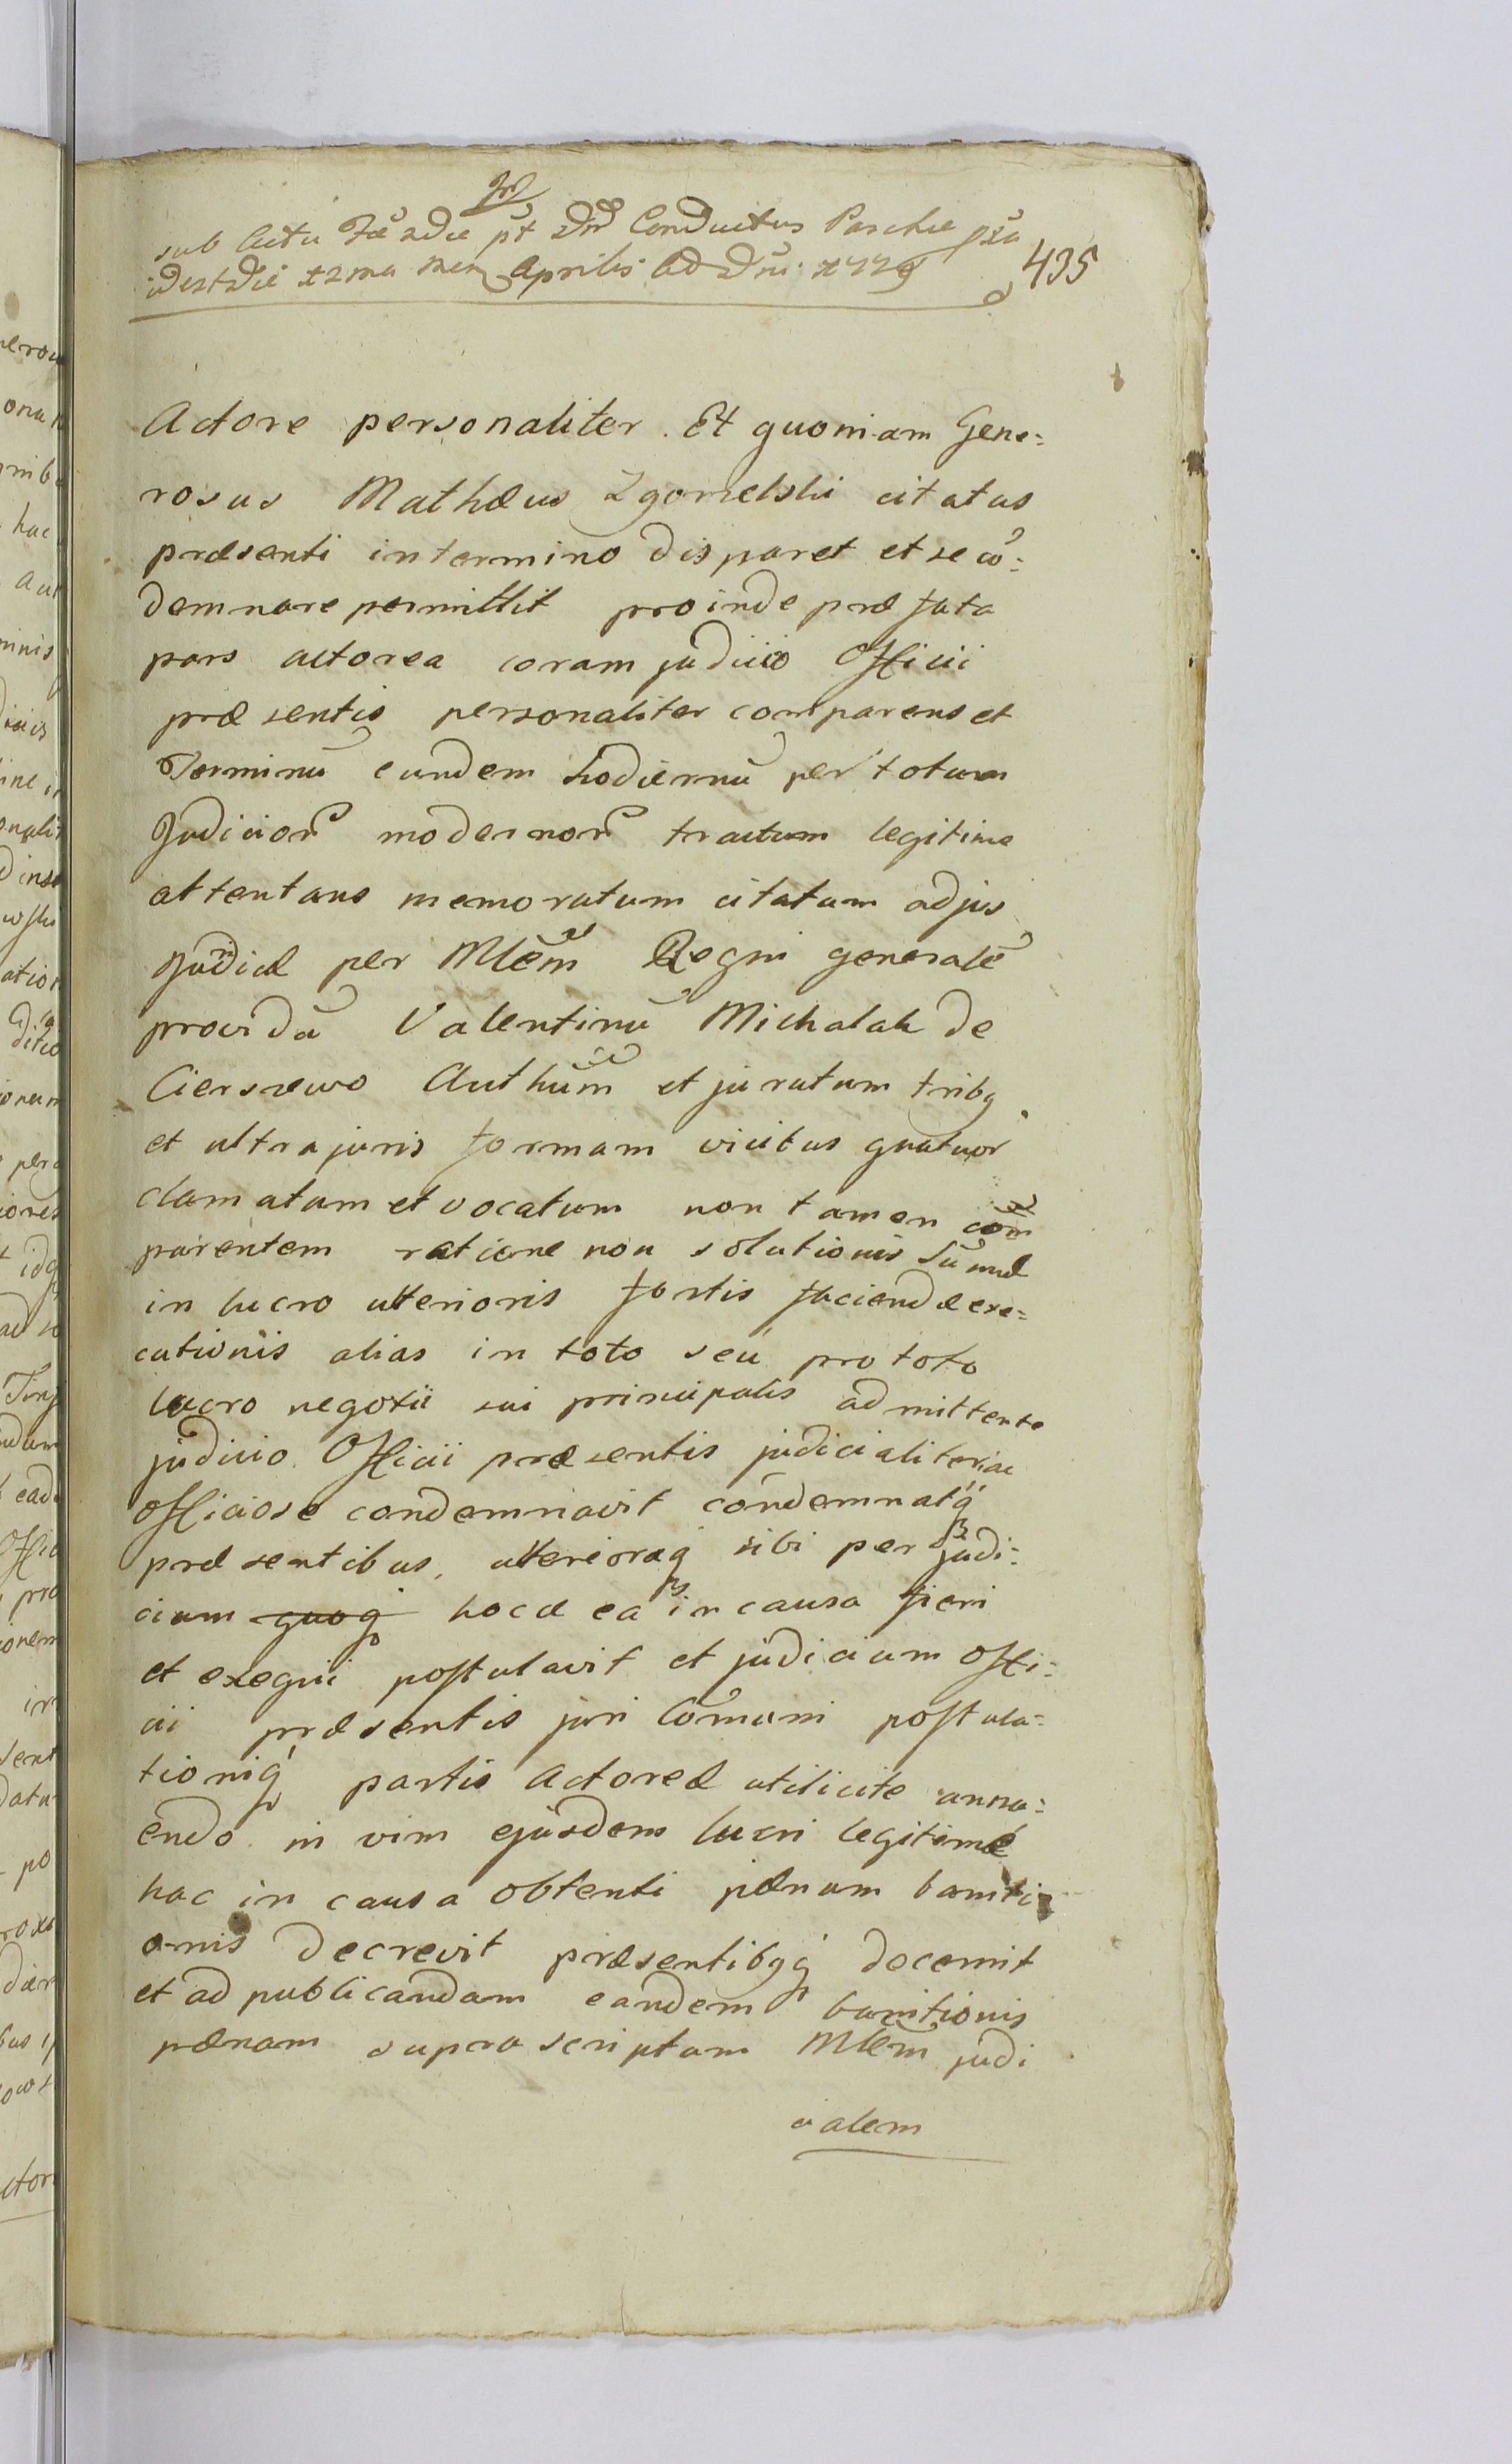 sub Actu Fæ 2dæ pt Dnī Conductus Paschæ pxa
idest Die 12ma men Aprilis A D Dni: 1779
435
Actore personaliter. Et quoniam Gene=
rosus Mathæus Zgorzelski citatus
præsenti in termino disparet et se cō=
demnare permittit proinde præfata
pars actorea coram judicio Officii
præsentis personaliter comparens et
Terminū eundem hodiernū per totum
Judicior modernor tractum legitime
attentans memoratum citatum ad jus
judicii per Mlēm Regni generalē
providū Valentinū Michalak de
Cierszewo Authūm et juratum tribq
et ultra juris formam vicibus quatuor
clamatum et vocatum non tamen com
parentem ratione non solutionis Sūmæ
in lucro ulterioris fortis faciendæ exe=
cutionis alias in toto seu pro toto
lucro negotii sui principalis admittente
judicio Officii præsentis judicialiter ac
officiose condemnavit condemnatq
præsentibus, ulterioraq sibi per judi=
cium quoq hocce ea in causa fieri
et exequi postulavit et judicium Offi=
cii præsentis juri Comuni postula=
tioniq partis Actoreæ utilicite annu=
endo in vim ejusdem lucri legitimè
hac in causa obtenti pænam banniti
onis decrevit præsentibqq decernit
et ad publicandam eandem banitionis
pænam supra scriptum Mlēm judi
cialem